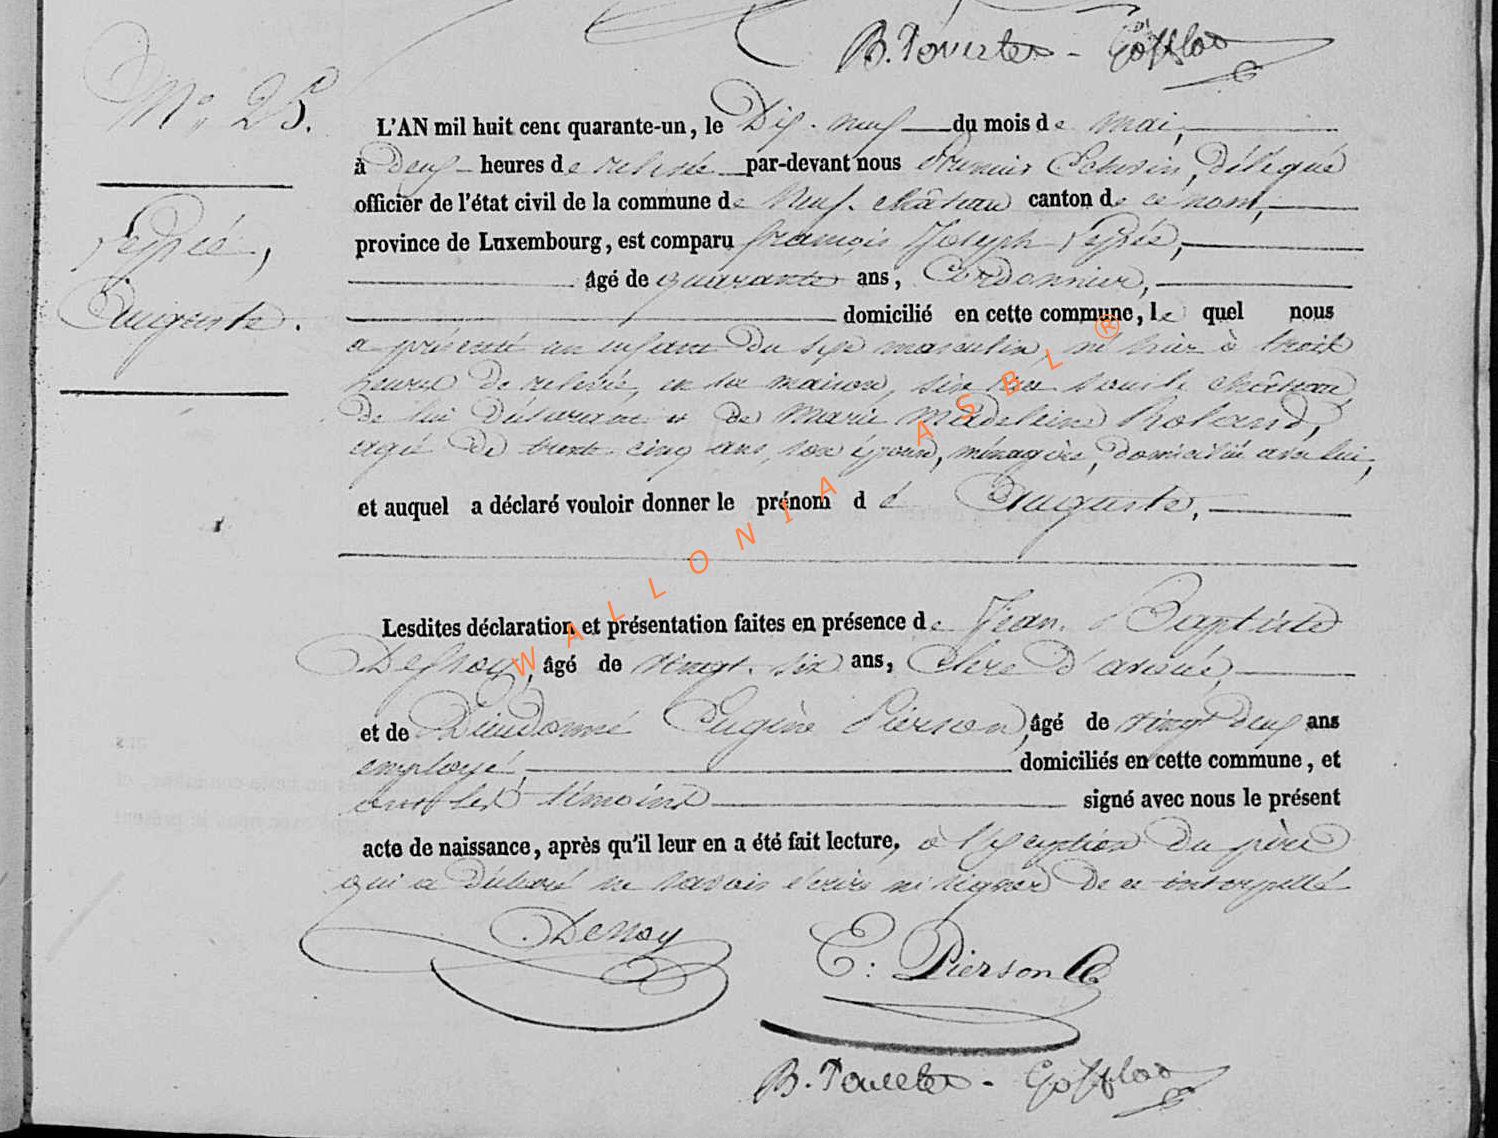 B. Poncelet - Gofflot
N° 25.
L'AN mil huit cent quarante-un, le Dix-neuf du mois de mai,
à Deux heures de relevée par-devant nous Premier Echevin, délégué
officier de l'état civil de la commune de Neuf-château canton de ce nom,
province de Luxembourg, est comparu françois Joseph
âgé de quarante ans, Cordonnier,
Auguste.
domicilié en cette commune, le quel nous
a présenté un enfant du sexe masculin, né hier à trois
heures de relevée, en sa maison, sise rue sous le château
de lui déclarant et de Marie Madeleine Roland,
agée de trente cinq ans, son épouse, ménagère, domiciliée avec lui,
et auquel a déclaré vouloir donner le prénom d' Auguste,
WALLONIA ASBL ®
Lesdites déclaration et présentation faites en présence de Jean Baptiste
âgé de vingt-six ans, Clerc d'avoué,
et de Dieudonné Eugène Pierson, âgé de vingt deux ans
employé, domiciliés en cette commune, et
ont les témoins signé avec nous le présent
acte de naissance, après qu'il leur en a été fait lecture, à l'exception du père
qui a déclaré ne savoir écrire ni signer de ce interpellé
E. Pierson
B. Poncelet - Gofflot